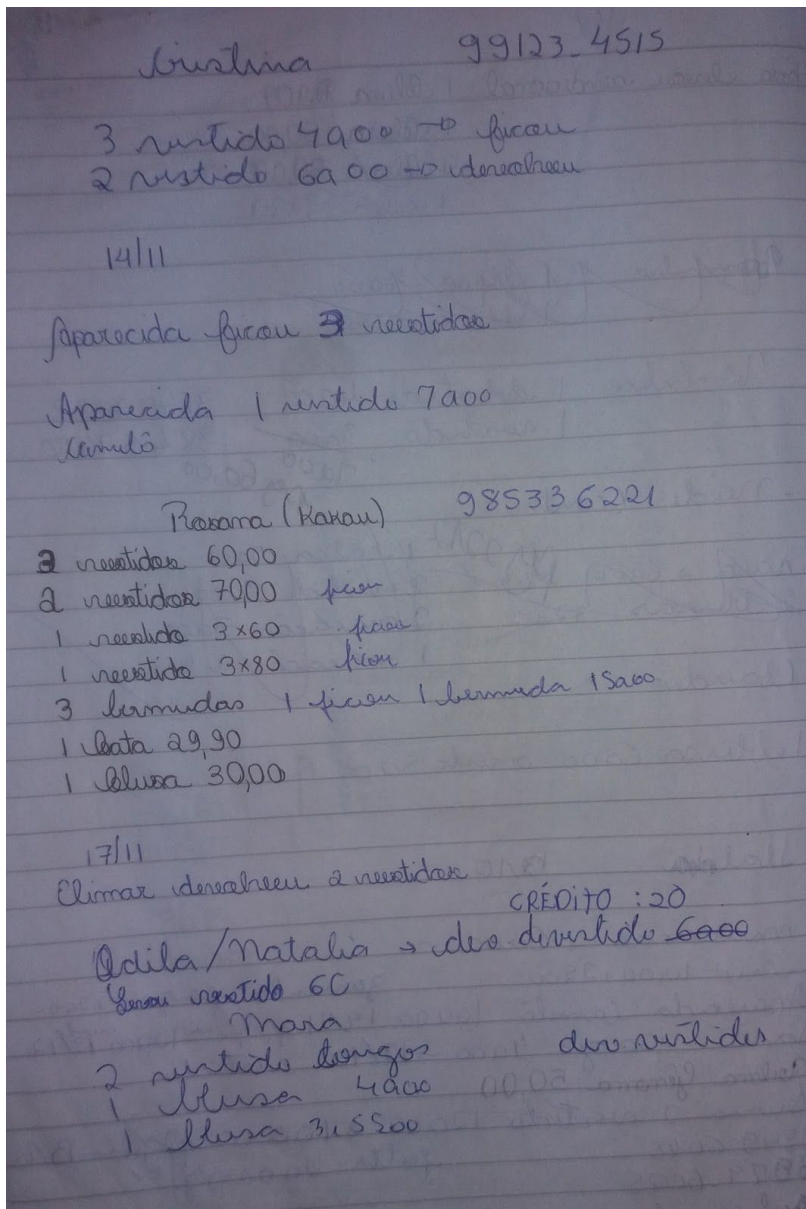 Cristina 99123-4515
3 vestido 4900 → ficou
2 vestido 6900 → devolveu
14/11
Aparecida ficou 3 vestidos
Aparecida 1 vestido 7900
Rosana (Kakau) 985336221
2 vestidos 60,00
2 vestidos 70,00 ficou
1 vestido 3x60 ficou
1 vestido 3x80 ficou
3 bermudas 1 ficou 1 bermuda 15900
1 bata 29,90
1 blusa 30,00
17/11
Elimar devolveu 2 vestidos
CRÉDITO : 20
Odila/Natalia → dev vestido 6900
Levou vestido 60
Mara
2 vestido longos dev vestidos
1 blusa 4900
1 blusa